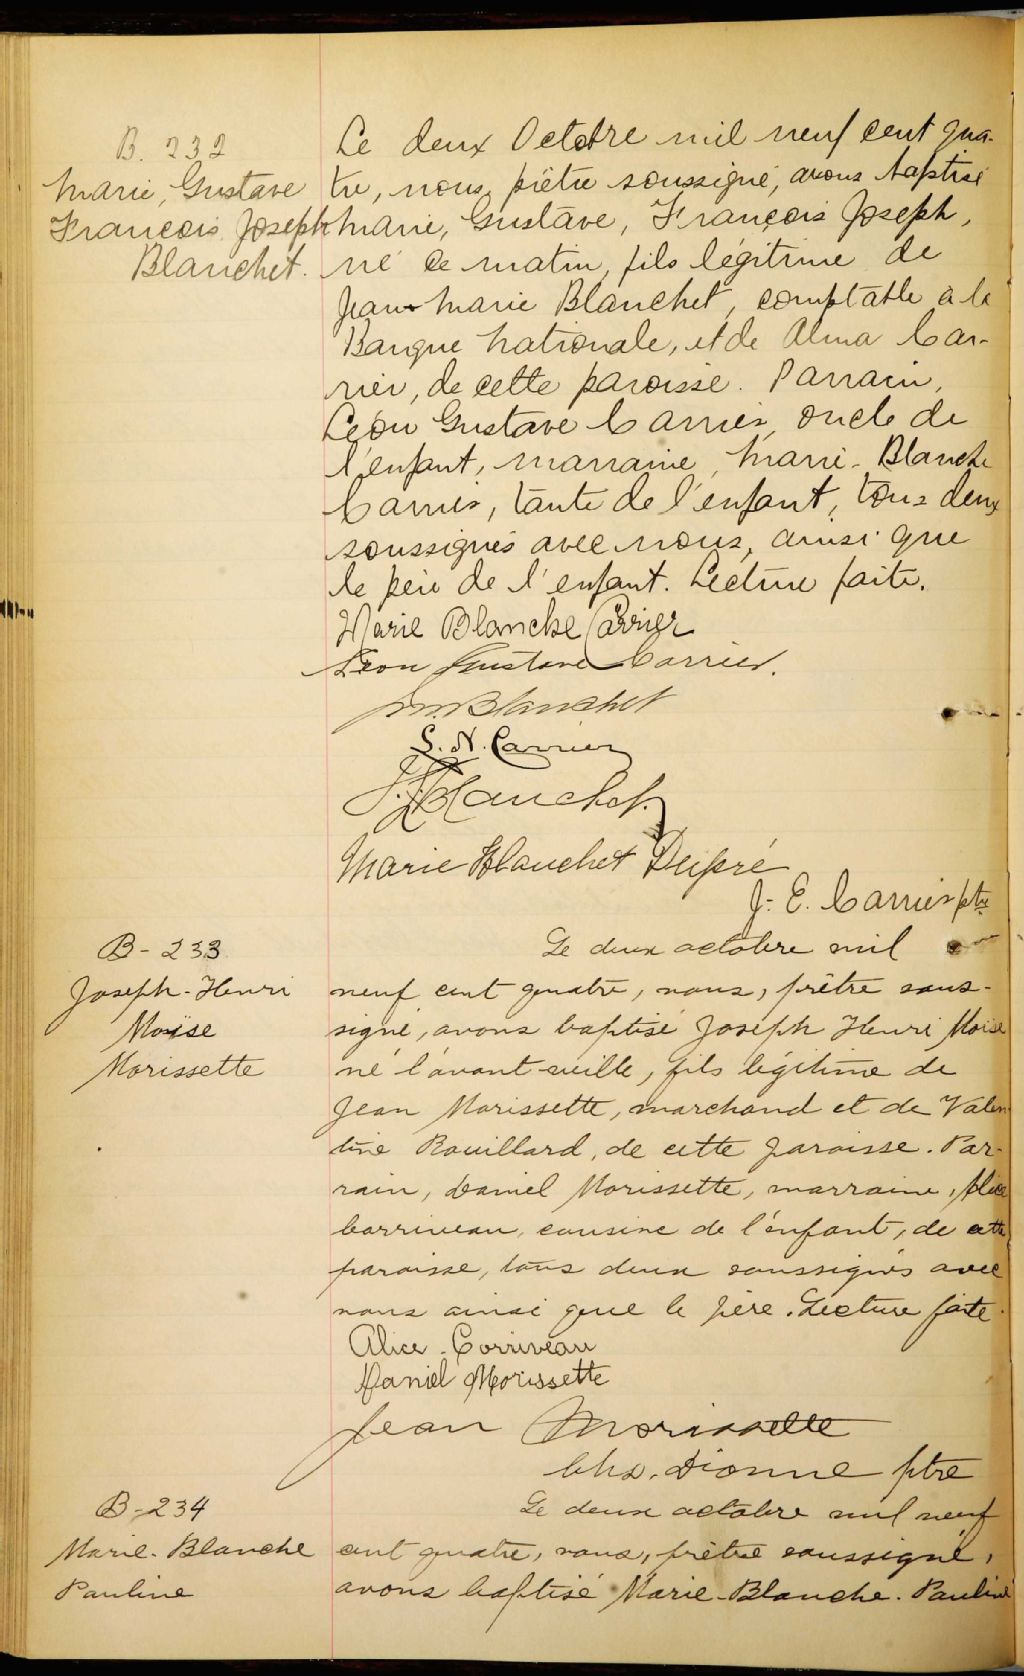 B. 232
Marie, Gustave
François Joseph
Blanchet.
Le deux Octobre mil neuf cent qua-
tre, nous, prêtre soussigné, avons baptisé
Marie, Gustave, François Joseph,
né ce matin, fils légitime de
Jean-Marie Blanchet, comptable à la
Banque Nationale, et de Alma Car-
rier, de cette paroisse. Parrain,
Léon Gustave Carrier, oncle de
l'enfant, marraine, Marie-Blanche
Carrier, tante de l'enfant, tous deux
soussignés avec nous, ainsi que
le père de l'enfant. Lecture faite.
Marie Blanche Carrier
Léon Gustave Carrier.
J.M. Blanchet
L. N. Carrier
Blanchet.
Marie Blanchet Dupré
J. E. Carrier ptre
B-233
Joseph-Henri
Moïse
Morissette
Le deux octobre mil
neuf cent quatre, nous, prêtre sous-
signé, avons baptisé Joseph Henri Moïse
né l'avant-veille, fils légitime de
Jean Morissette, marchand et de Valen
tine Rouillard, de cette paroisse. Par-
rain, Daniel Morissette, marraine, Alice
Corriveau, cousine de l'enfant, de cette
paroisse, tous deux soussignés avec
nous ainsi que le père. Lecture faite.
Alice. Corriveau
Daniel Morissette
Jean Morissette
Chs. Dionne ptre
B-234
Marie-Blanche
Pauline
Le deux octobre mil neuf
cent quatre, nous, prêtre soussigné,
avons baptisé Marie-Blanche-Pauline